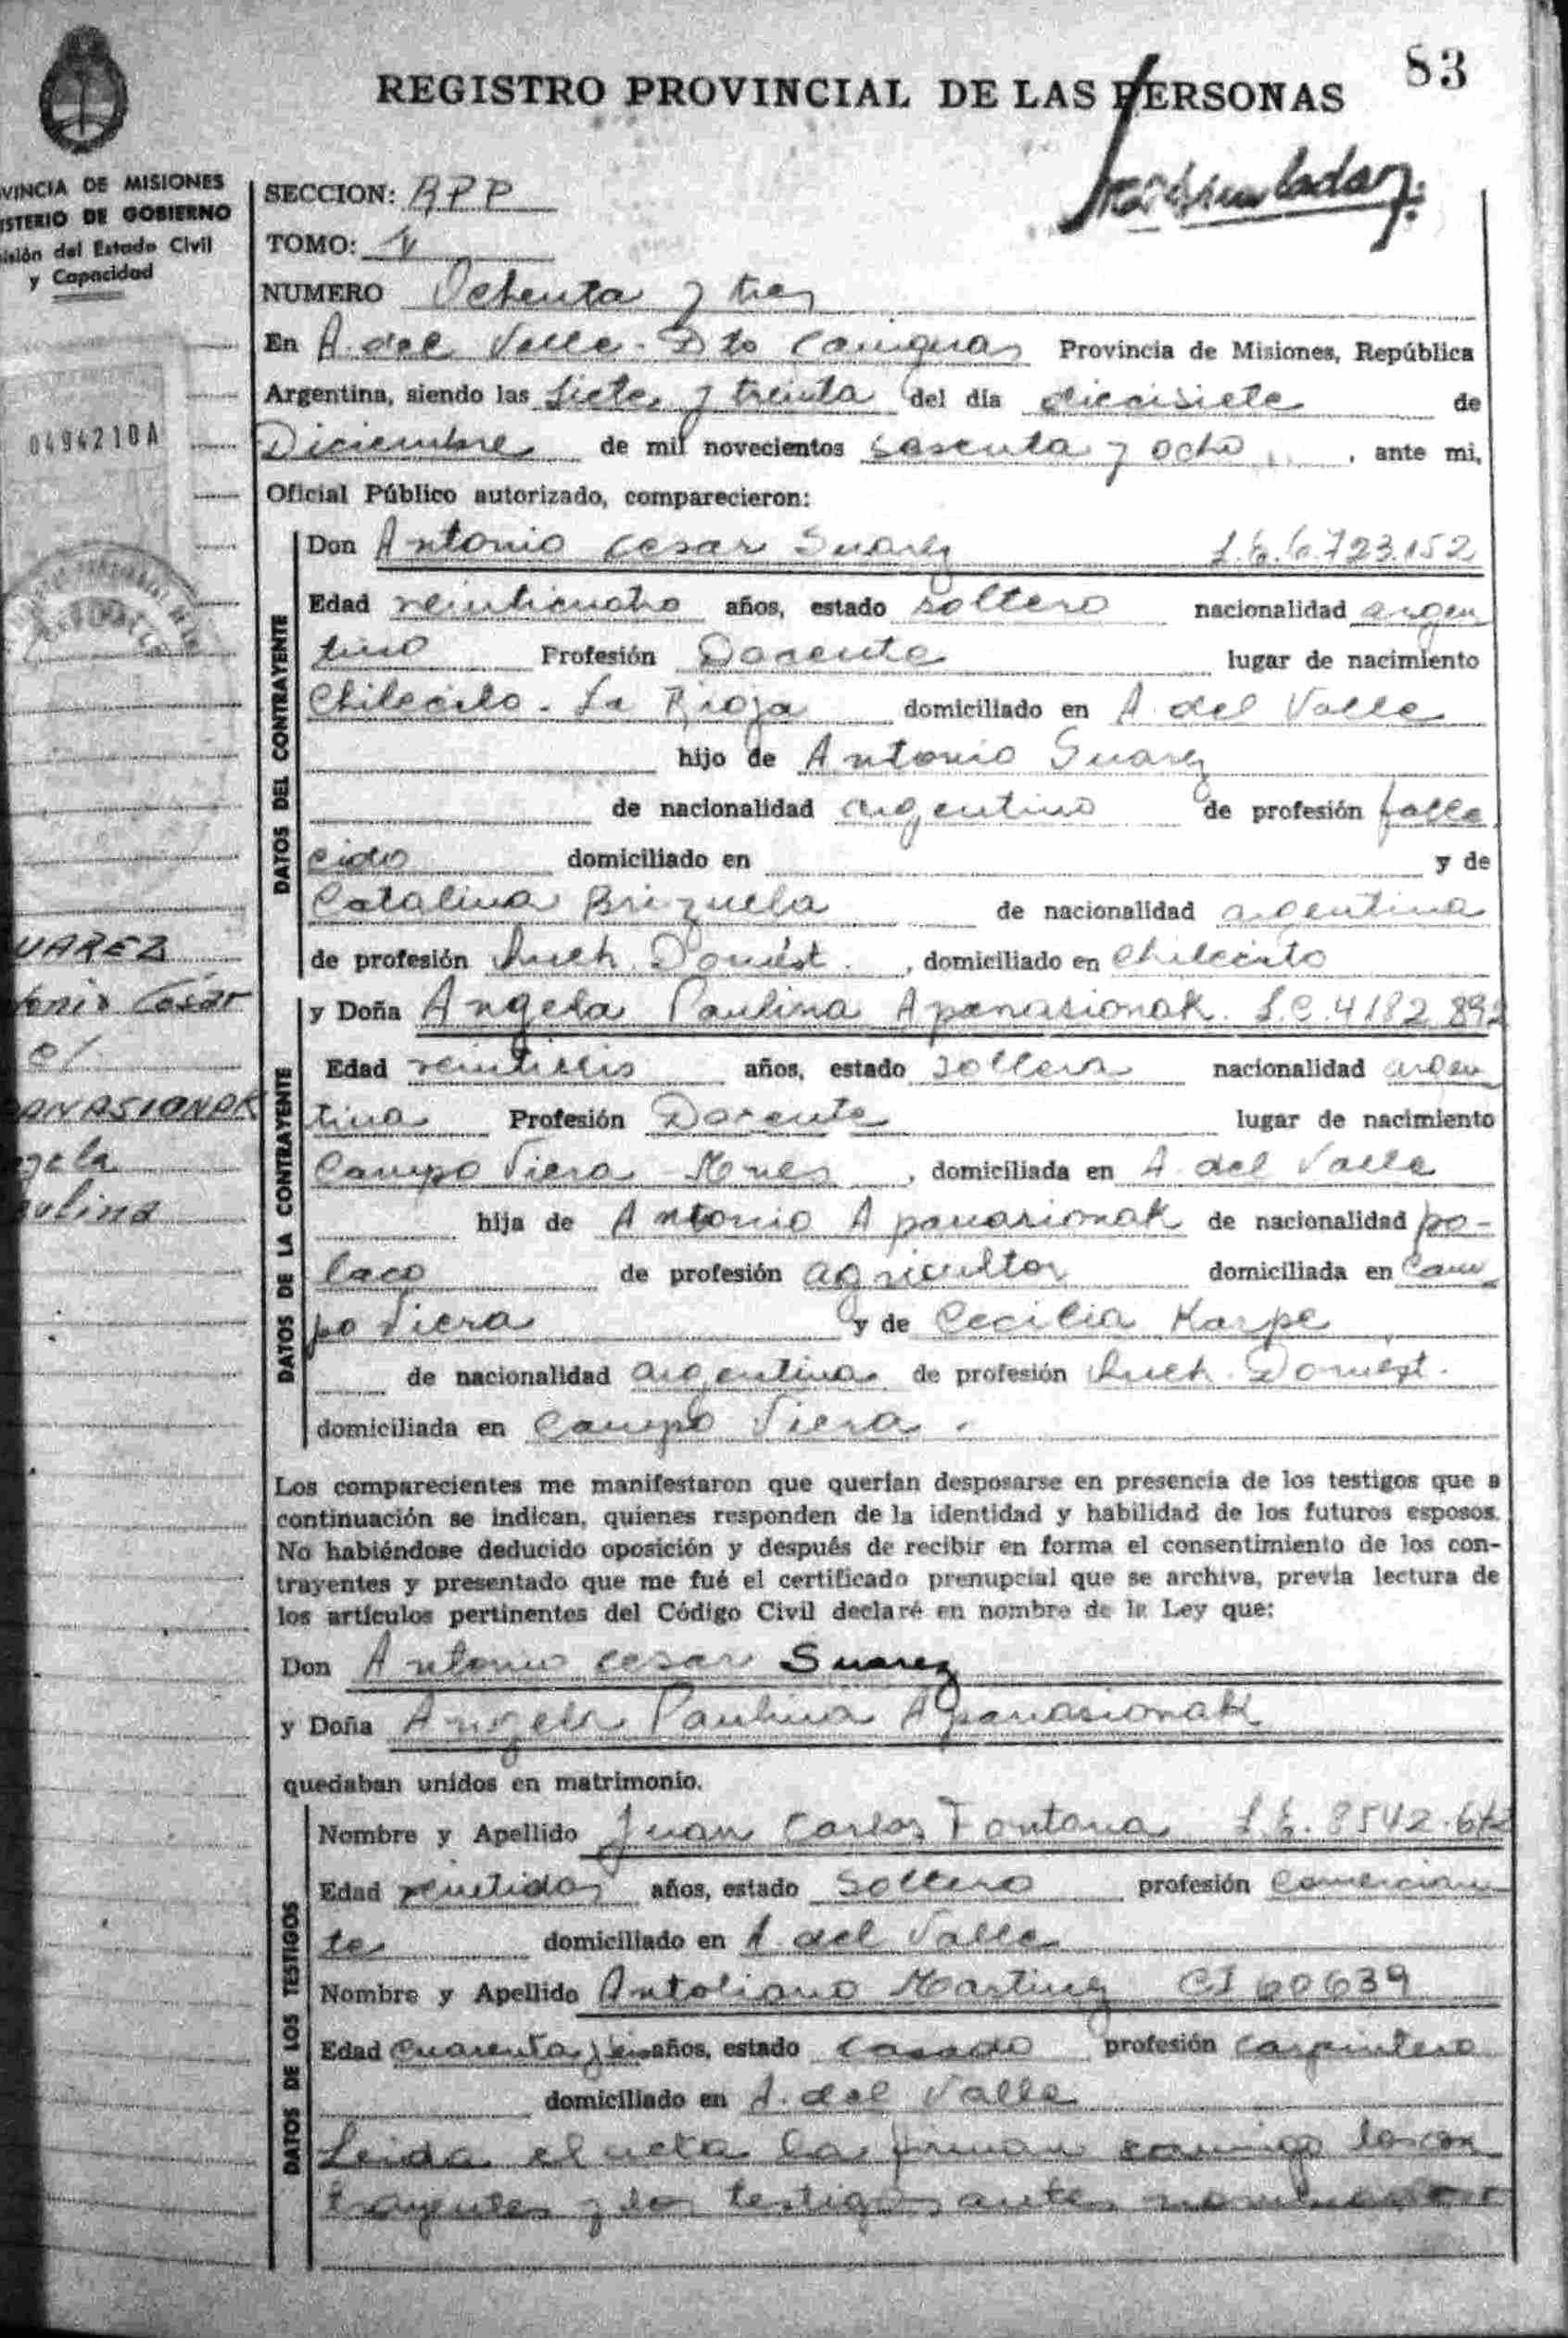 83
REGISTRO PROVINCIAL DE LAS PERSONAS
VINCIA DE MISIONES
ISTERIO DE GOBIERNO
isión del Estado Civil
y Capacidad
SECCION: RPP
TOMO:
NUMERO Ochenta y tres
En A. del Valle - Dto Cainguas Provincia de Misiones, República
Argentina, siendo las siete y treinta del día diecisiete de
Diciembre de mil novecientos sesenta y ocho, ante mi,
0494210A
Oficial Público autorizado, comparecieron:
DATOS DEL CONTRAYENTE
Don Antonio Cesar Suarez L.E. 6.723.152
Edad veinticuatro años, estado soltero nacionalidad argen
tino Profesión Docente lugar de nacimiento
Chilecito - La Rioja domiciliado en A. del Valle
hijo de Antonio Suarez
de nacionalidad argentino de profesión falle
cido domiciliado en y de
Catalina Brizuela de nacionalidad argentina
de profesión Domést. , domiciliado en Chilecito
UAREZ
tonio Cesar
c/
ANASIONAK
gela
aulina
DATOS DE LA CONTRAYENTE
y Doña Angela Paulina Apanasionak. L.C. 4182 892
Edad años, estado soltera nacionalidad argen
tina Profesión Docente lugar de nacimiento
Campo Viera Mnes , domiciliada en A. del Valle
hija de Antonio Apanasionak de nacionalidad po-
laco de profesión agricultor domiciliada en Cam
po Viera y de Cecilia Karpe
de nacionalidad argentina de profesión Domést.
domiciliada en Campo Viera .
Los comparecientes me manifestaron que querían desposarse en presencia de los testigos que a
continuación se indican, quienes responden de la identidad y habilidad de los futuros esposos.
No habiéndose deducido oposición y después de recibir en forma el consentimiento de los con-
trayentes y presentado que me fué el certificado prenupcial que se archiva, previa lectura de
los artículos pertinentes del Código Civil declaré en nombre de la Ley que:
Don Antonio Cesar Suarez
y Doña Angela Paulina Apanasionak
quedaban unidos en matrimonio.
DATOS DE LOS TESTIGOS
Nombre y Apellido Juan Carlos Fontana L.E. 8542.
Edad veintidos años, estado Soltero profesión Comercian
te domiciliado en A. del Valle
Nombre y Apellido Antoliano Martinez CI 60639
Edad cuarenta y años, estado casado profesión carpintero
domiciliado en A. del Valle
Leida el acta la firman conmigo los con
trayentes y los testigos antes nominados